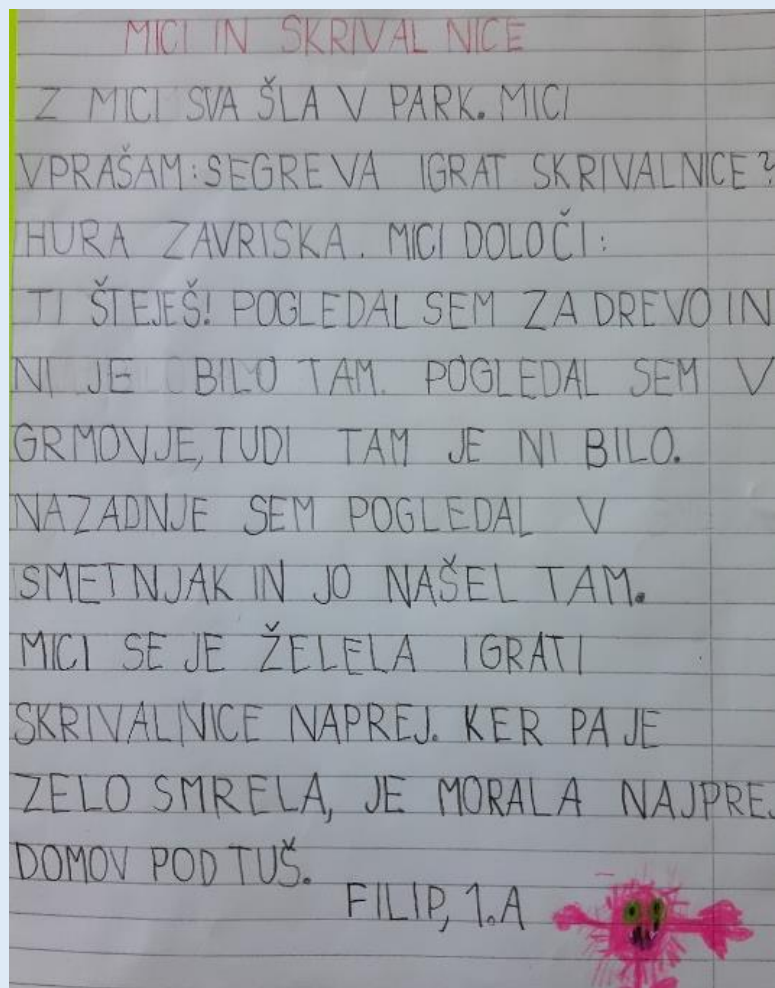 MICI IN SKRIVALNICE
Z MICI SVA ŠLA V PARK. MICI
VPRAŠAM: SE GREVA IGRAT SKRIVALNICE?
HURA ZAVRISKA. MICI DOLOČI:
TI ŠTEJEŠ! POGLEDAL SEM ZA DREVO IN
NI JE BILO TAM. POGLEDAL SEM V
GRMOVJE, TUDI TAM JE NI BILO.
NAZADNJE SEM POGLEDAL V
SMETNJAK IN JO NAŠEL TAM.
MICI SE JE ŽELELA IGRATI
SKRIVALNICE NAPREJ. KER PA JE
ZELO SMRELA, JE MORALA NAJPREJ
DOMOV POD TUŠ.
FILIP, 1.A